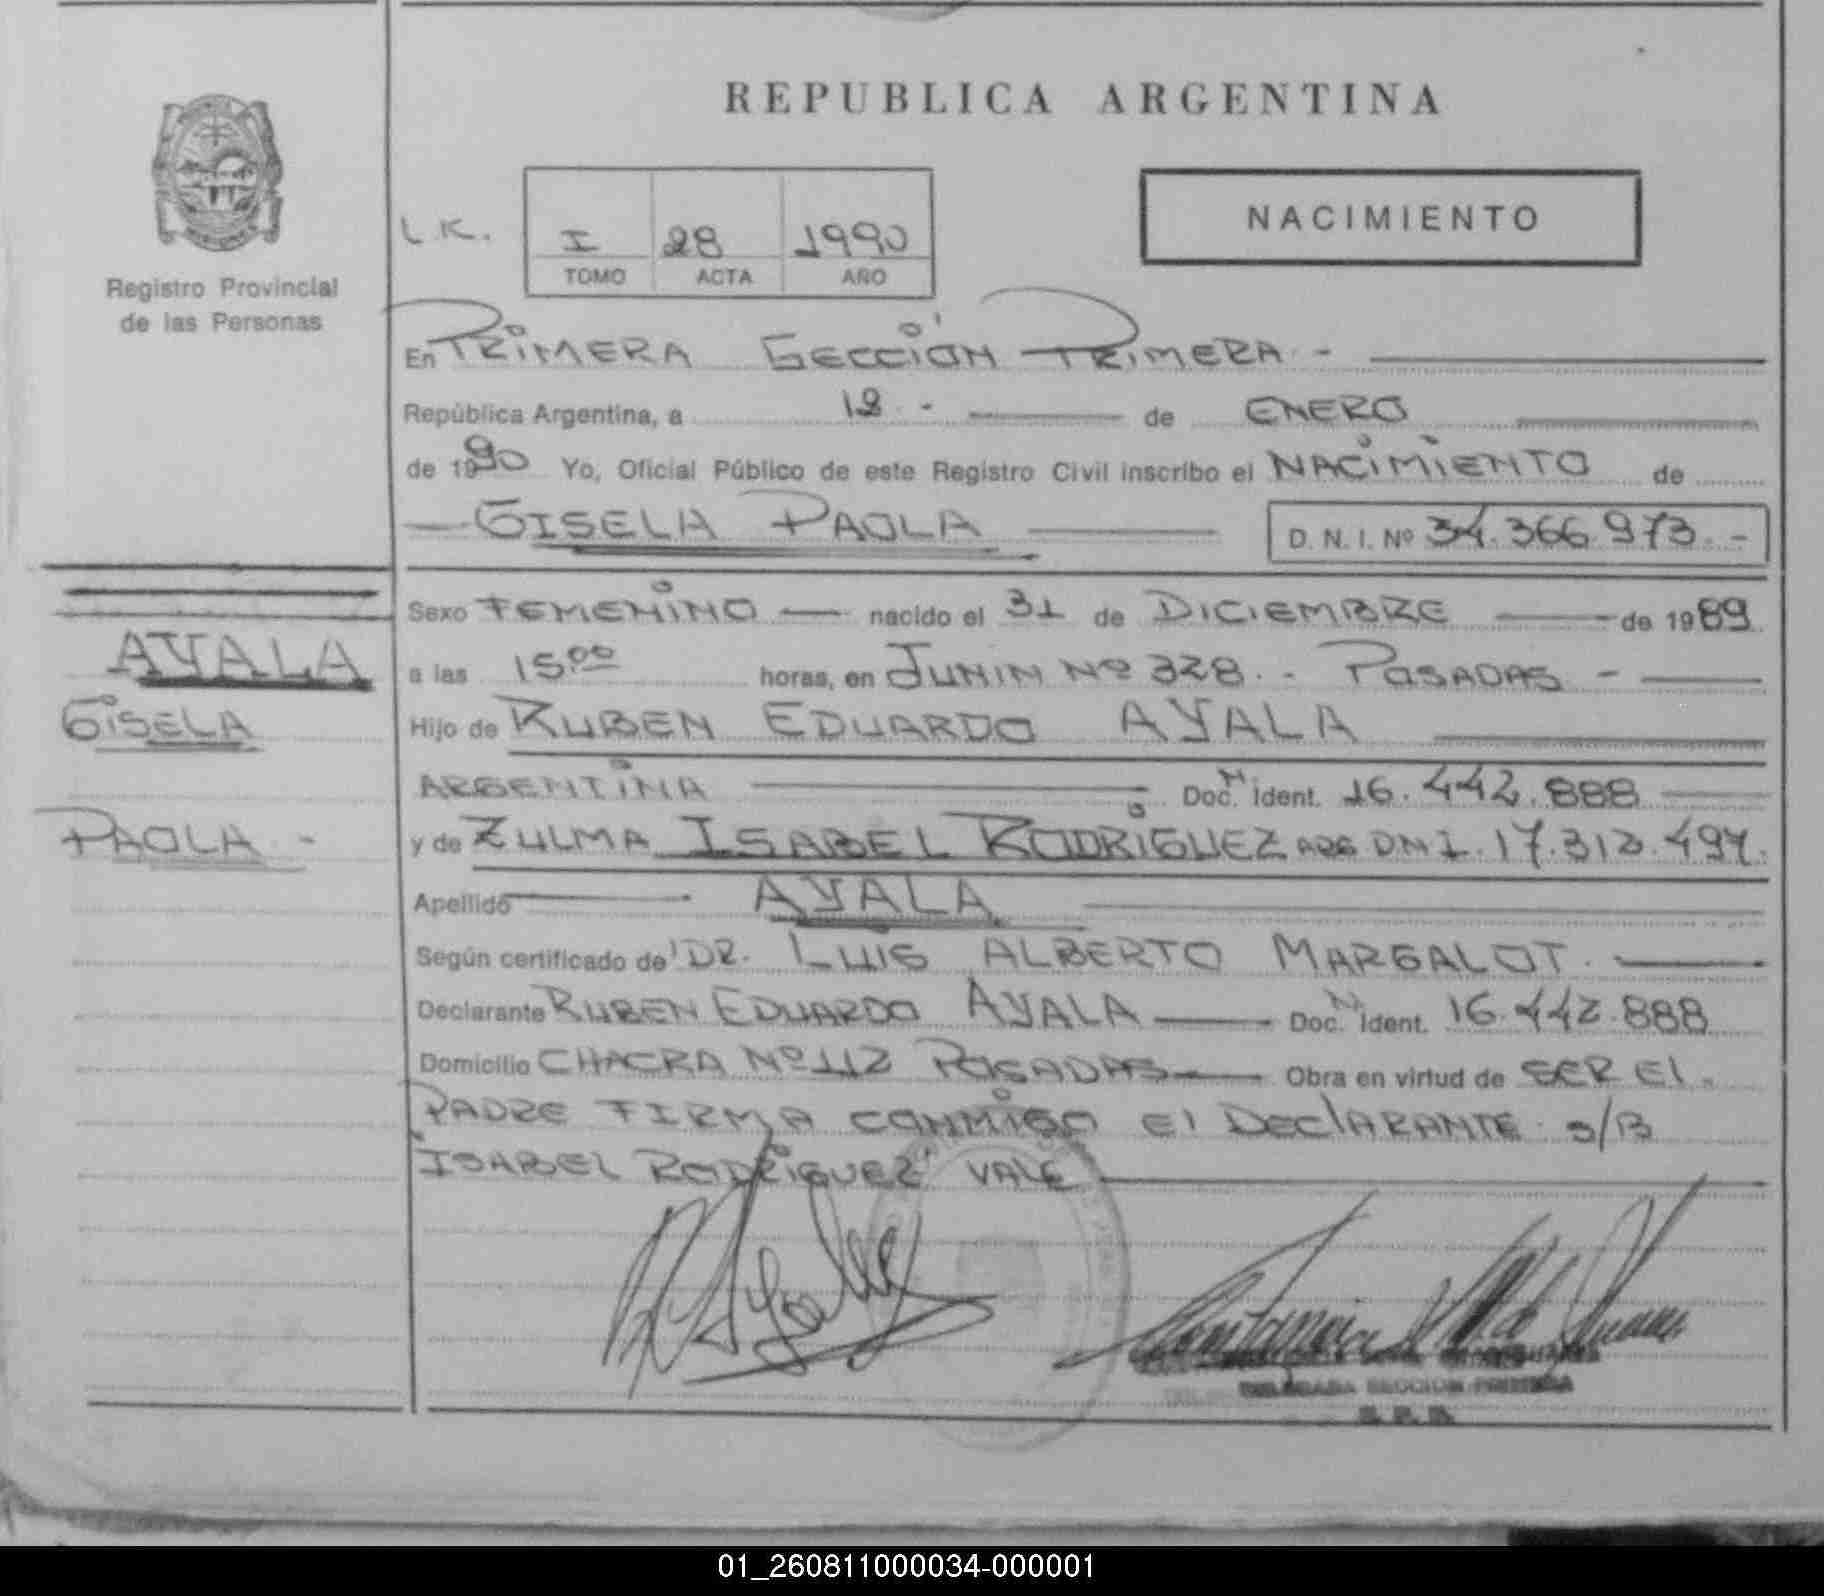 REPUBLICA ARGENTINA
NACIMIENTO
L.K. I 28 1990
TOMO ACTA AÑO
Registro Provincial
de las Personas
En PRIMERA SECCIÓN PRIMERA.-
República Argentina, a 12.- de ENERO
de 1990 Yo, Oficial Público de este Registro Civil inscribo el NACIMIENTO de
GISELA PAOLA D. N. I. Nº 34.366.973.-
Sexo FEMENINO nacido el 31 de DICIEMBRE de 1989
AYALA
a las 15:00 horas, en JUNIN Nº 328.- POSADAS -
GISELA
Hijo de RUBEN EDUARDO AYALA
ARGENTINA Doc. N Ident. 16.442.888
PAOLA.-
y de ZULMA ISABEL RODRIGUEZ ARG DNI. 17.312.494.
Apellido AYALA
Según certificado de DR. LUIS ALBERTO MARGALOT.
Declarante RUBEN EDUARDO AYALA Doc. N Ident. 16.442.888
Domicilio CHACRA Nº 112 POSADAS Obra en virtud de SER El.
PADRE FIRMA CONMIGO El DEClARANTE. S/B
ISABEL RODRIGUEZ VALE
SECCION PRIMERA
01_260811000034-000001